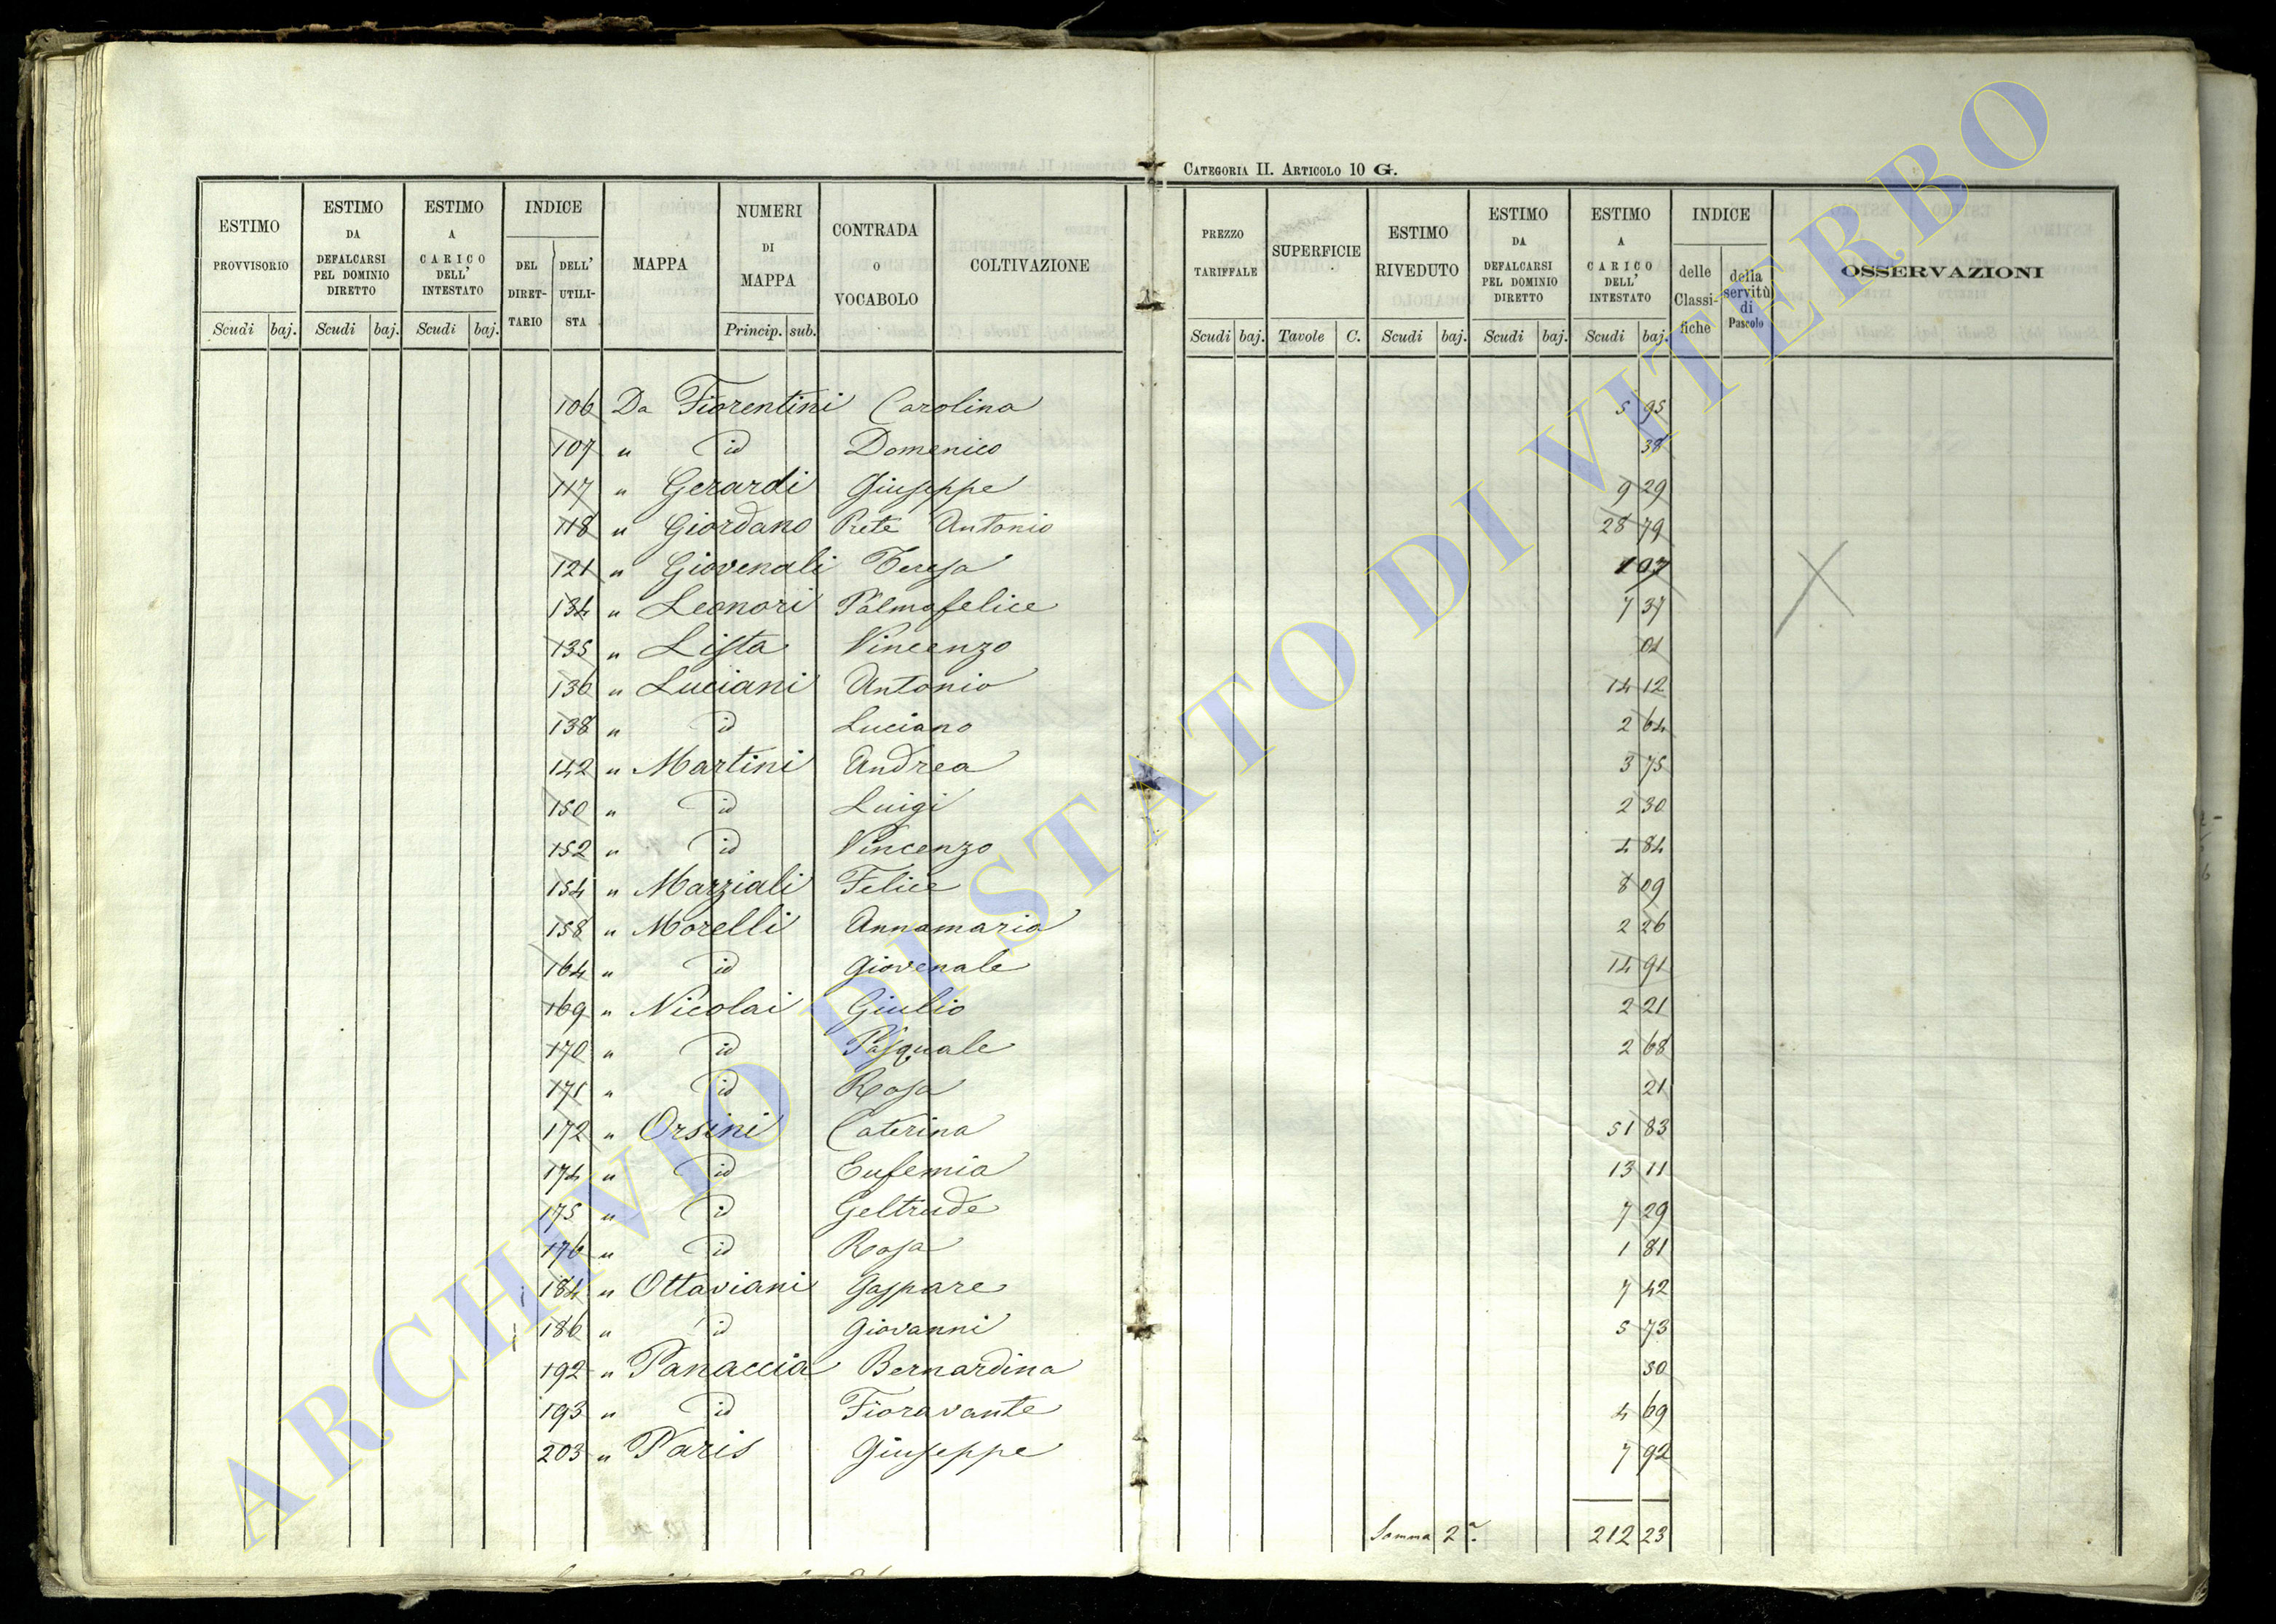 CATEGORIA II. ARTICOLO 10 G.
ESTIMO PROVVISORIO Scudi baj.
ESTIMO DA DEFALCARSI PEL DOMINIO DIRETTO Scudi baj.
ESTIMO A CARICO DELL' INTESTATO Scudi baj.
INDICE DEL DIRETTARIO DELL' UTILISTA
MAPPA
NUMERI DI MAPPA Princip. sub.
CONTRADA O VOCABOLO
COLTIVAZIONE
PREZZO TARIFFALE Scudi baj.
SUPERFICIE Tavole C.
ESTIMO RIVEDUTO Scudi baj.
ESTIMO DA DEFALCARSI PEL DOMINIO DIRETTO Scudi baj.
ESTIMO A CARICO DELL' INTESTATO Scudi baj.
INDICE delle Classifiche della servitù di Pascolo
OSSERVAZIONI
106 Da Fiorentini Carolina 5 95
107 " id Domenico 38
117 " Gerardi Giuseppe 9 29
118 " Giordano Prete Antonio 28 79
121 " Giovenali Teresa 1 07
134 " Leonori Palmafelice 7 37
135 " Lista Vincenzo 01
136 " Luciani Antonio 14 12
138 " id Luciano 2 64
142 " Martini Andrea 3 75
150 " id Luigi 2 30
152 " id Vincenzo 4 84
154 " Marziali Felice 8 09
158 " Morelli Annamaria 2 26
164 " id Giovenale 14 91
169 " Nicolai Giulio 2 21
170 " id Pasquale 2 68
171 " id Rosa 21
172 " Orsini Caterina 51 83
174 " id Eufemia 13 11
175 " id Geltrude 7 29
176 " id Rosa 1 81
184 " Ottaviani Gaspare 7 42
186 " id Giovanni 5 73
192 " Panaccia Bernardina 50
193 " id Fioravante 4 69
203 " Paris Giuseppe 7 92
Somma 2ª. 212 23
ARCHIVIO DI STATO DI VITERBO